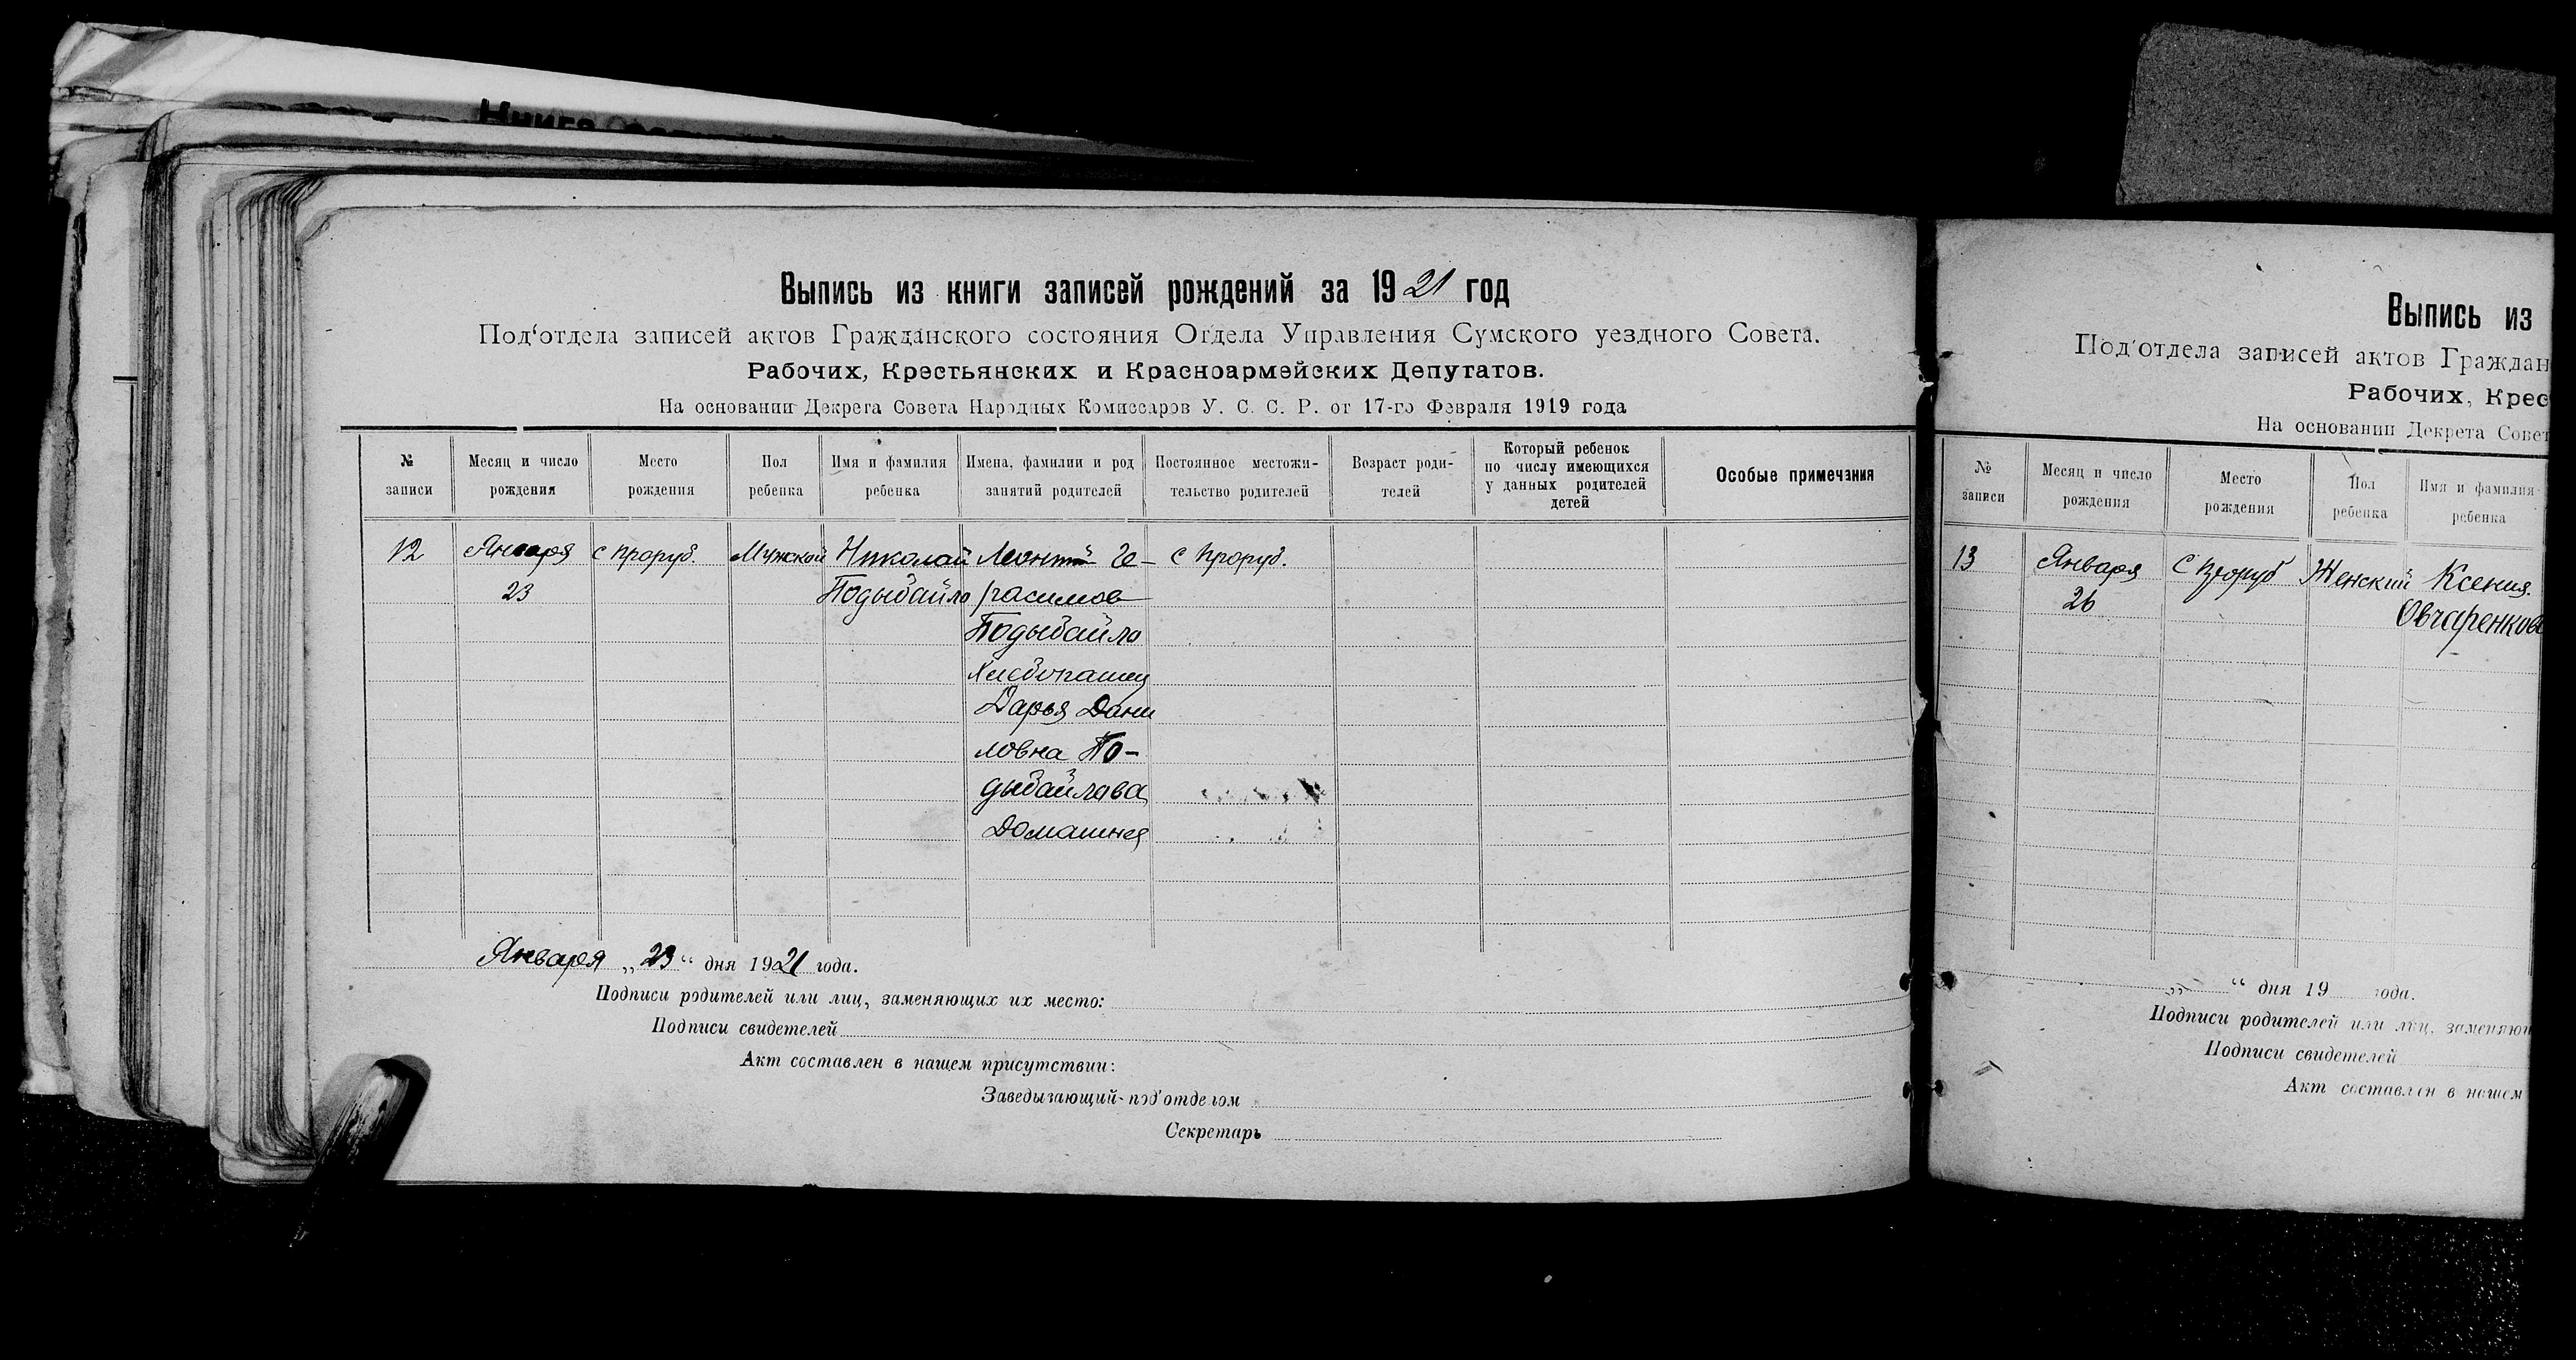 Книга
Выпись из книги записей рождений за 1921 год
Под'отдела записей актов Гражданского состояния Отдела Управления Сумского уездного Совета.
Рабочих, Крестьянских и Красноармейских Депутатов.
На основании Декрета Совета Народных Комиссаров У. С. С. Р. от 17-го Февраля 1919 года
№ записи
Месяц и число рождения
Место рождения
Пол ребенка
Имя и фамилия ребенка
Имена, фамилии и род занятий родителей
Постоянное местожи-
тельство родителей
Возраст роди-
телей
Который ребенок
по числу имеющихся
у данных родителей
детей
Особые примечания
12
Января
23
с Проруб.
Мужской
Николай
Подыбайло
Леонтий Ге-
расимов
Подыбайло
Хлебопашец
Дарья Дани
ловна По-
дыбайлова
Домашняя
с Проруб.
Января „23“ дня 1921 года.
Подписи родителей или лиц, заменяющих их место:
Подписи свидетелей
Акт составлен в нашем присутствии:
Заведывающий-под'отделом
Секретарь
Выпись из
Под'отдела записей актов Граждан
Рабочих, Крес
На основании Декрета Совет
№ записи
Месяц и число рождения
Место рождения
Пол ребенка
Имя и фамилия ребенка
13
Января
26
С Проруб
Женский
Ксения.
Овчаренкова
„ “ дня 19 года.
Подписи родителей или лиц, заменяю
Подписи свидетелей
Акт составлен в нашем